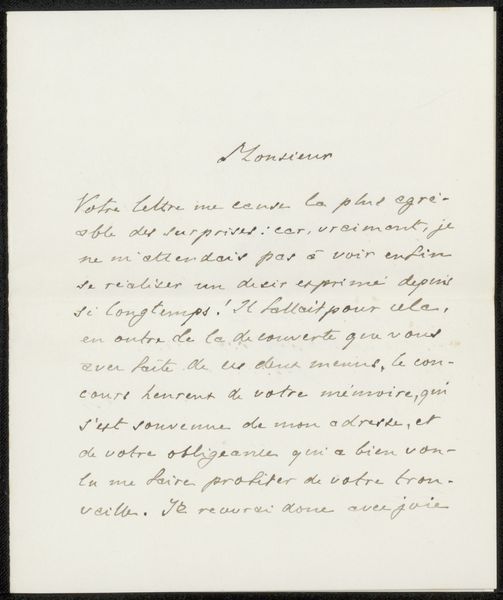 Monsieur
Votre lettre me cause la plus agré-
able des surprises: car, vraiment, je
ne m'attendais pas à voir enfin
se réaliser un desir exprimé depuis
si longtemps! Il fallait pour cela,
en outre de la decouverte que vous
avez faite de ces deux menus, le con-
cours heureux de votre mémoire, qui
s'est souvenue de mon adresse, et
de votre obligeance qui a bien vou-
lu me faire profiter de votre trou-
vaille. Je recevrai donc avec joie